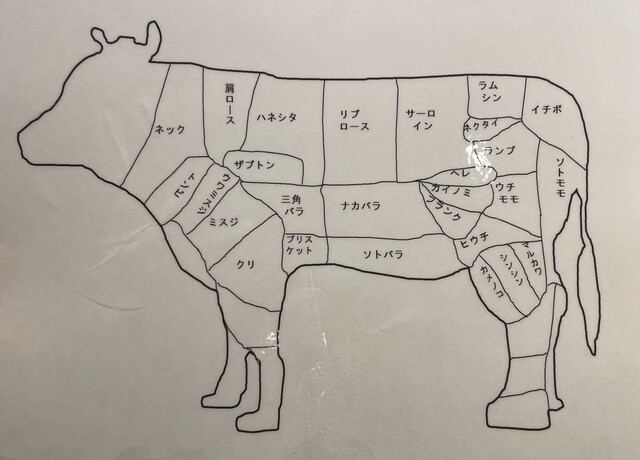 ネック
肩ロース
ハネシタ
リブ
ロース
サーロ
イン
ラム
シン
イチボ
ネクタイ
ランプ
ザブトン
トンビ
ウワミスジ
ミスジ
クリ
三角
バラ
ブリス
ケット
ナカバラ
ソトバラ
ヘレ
カイノミ
フランク
ウチ
モモ
ソトモモ
ヒウチ
マルカワ
シンシン
カメノコ